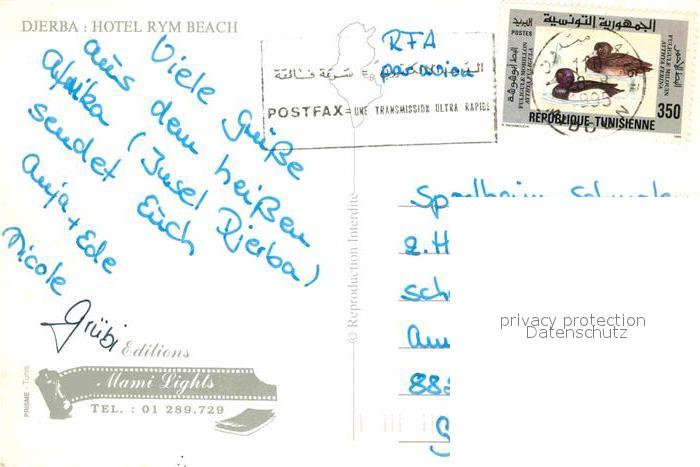 DJERBA : HOTEL RYM BEACH
Viele Grüße
aus dem heißen
Afrika (Insel Djerba)
sendet Euch
Anja + Ede
Nicole
Grübi
Editions
Mami Lights
TEL. : 01 289.729
PRISME - Tunis
© Reproduction Interdite
RFA
par avion
POSTFAX = UNE TRANSMISSION ULTRA RAPIDE
الجمهورية التونسية
POSTES
FULIGULE MORILLON
AYTHYA FULIGULA
FULIGULE MILOUIN
AYTHYA FERINA
350
REPUBLIQUE TUNISIENNE
2. H
88
privacy protection
Datenschutz